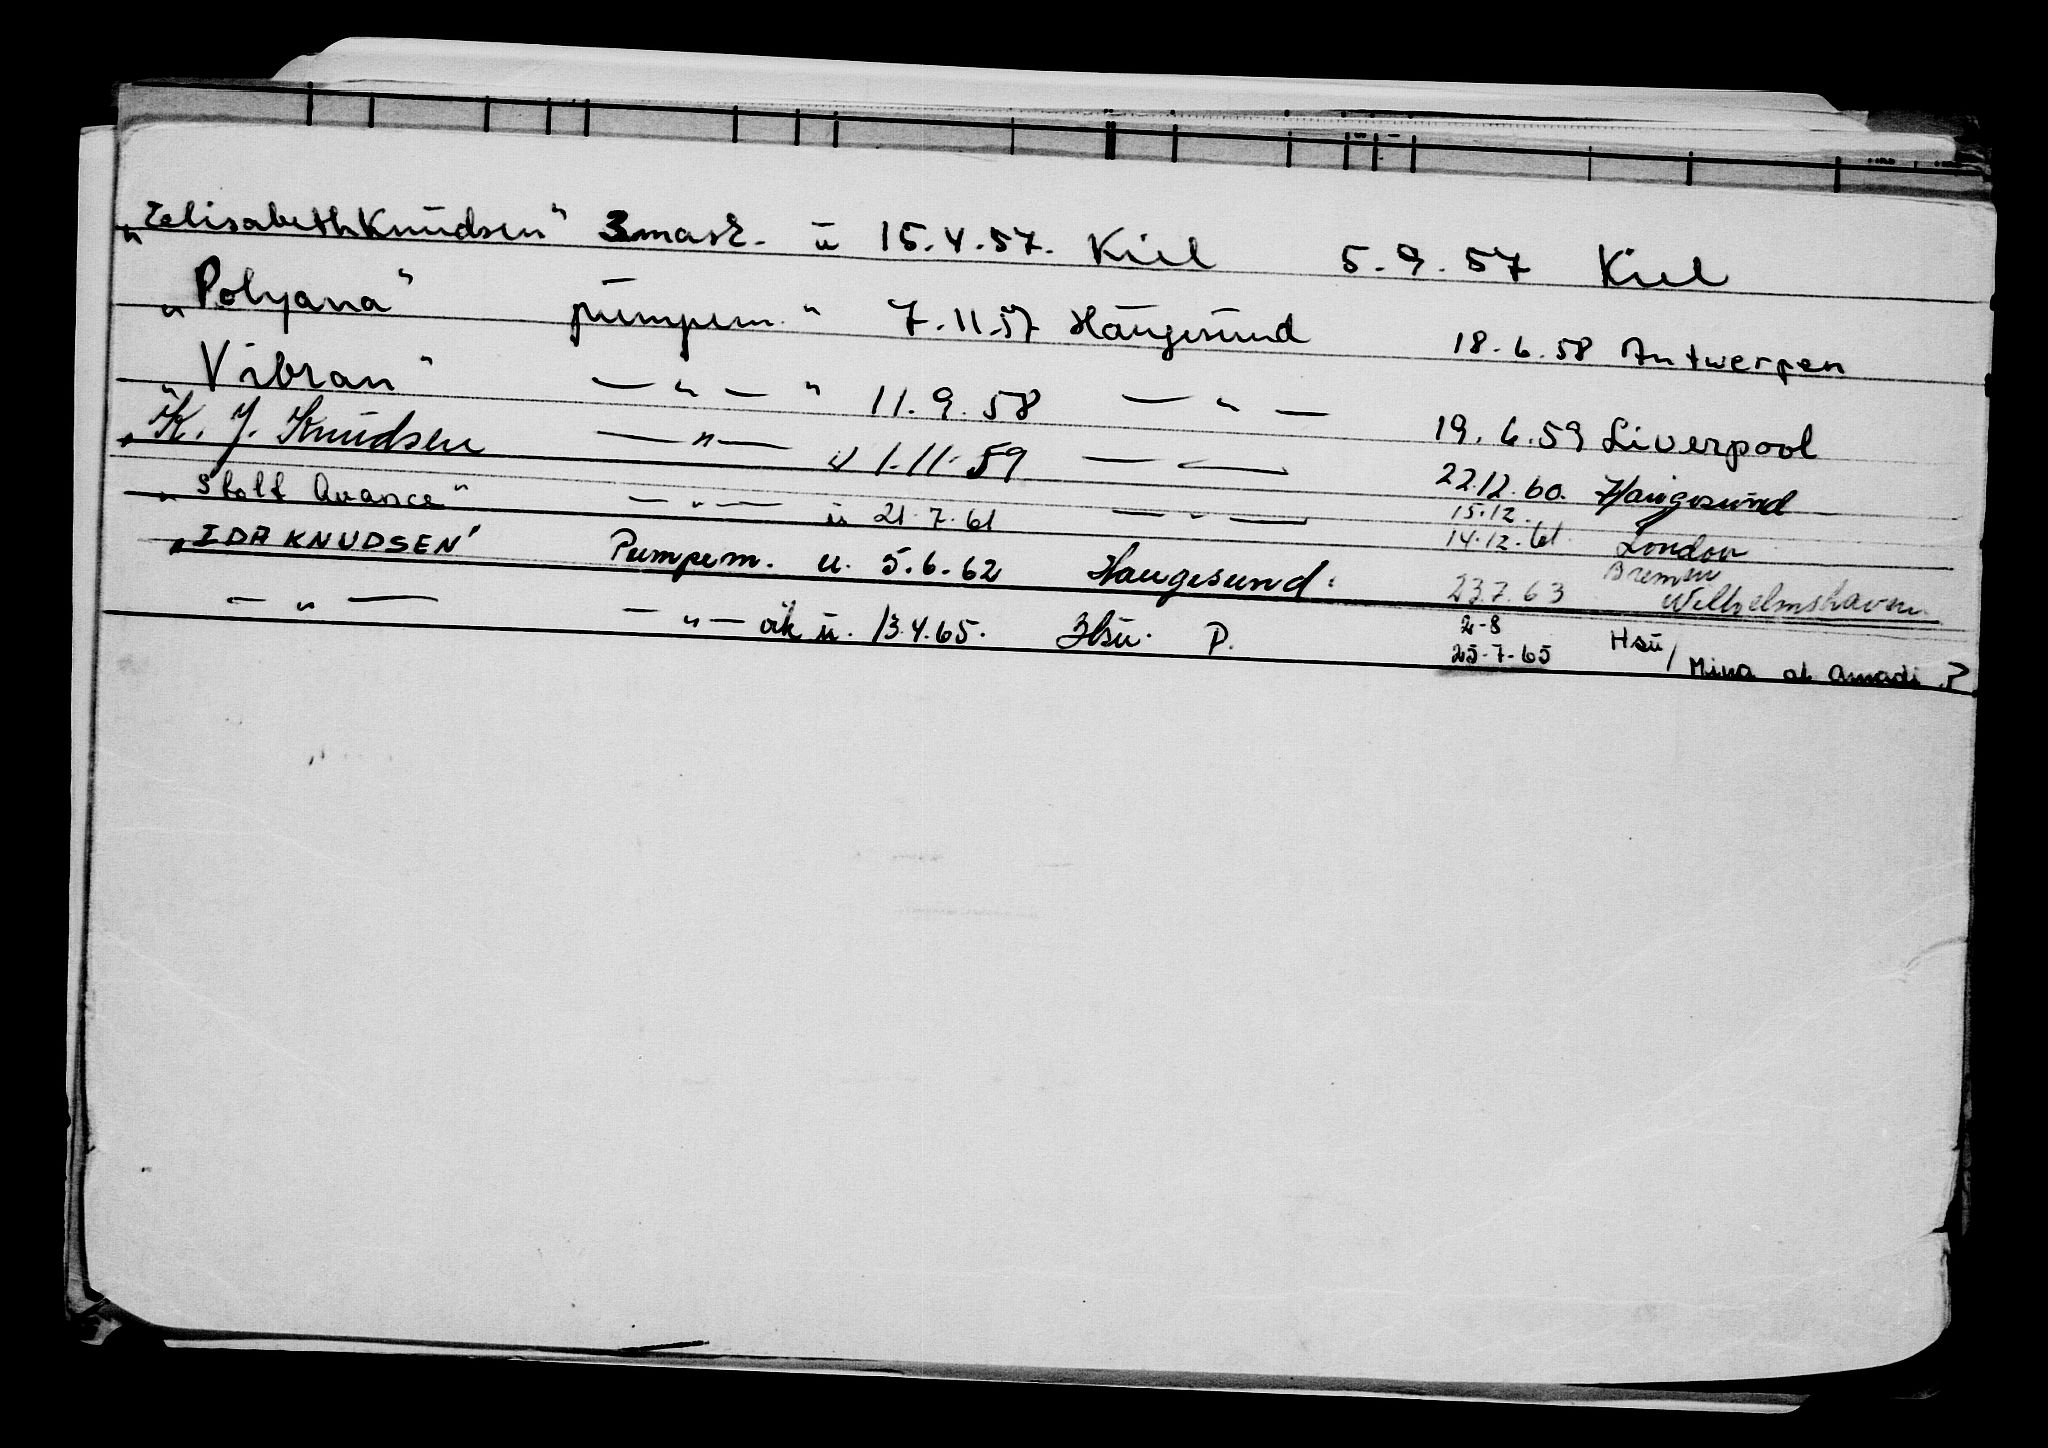 „Elisabeth Knudsen" 3mask. u 15.4.57. Kiel 5.9.57 Kiel
„Polyana" pumpem. " 7.11.57 Haugesund 18.6.58 Antwerpen
„Vibran" — " — " 11.9.58 — " — 19.6.59 Liverpool
„K. J. Knudsen — " — u 1.11.59 — — 22.12.60. Haugesund
„Stolt Avance" — " — u 21.7.61 — " — 15.12. 14.12.61. London
„IDA KNUDSEN" Pumpem. u. 5.6.62 Haugesund. 23.7.63 Bremen Wilhelmshaven
— " — — " — øk u. 13.4.65. Hsu. P. 2-8 25.7.65 Hsu/Mina al Amadi P